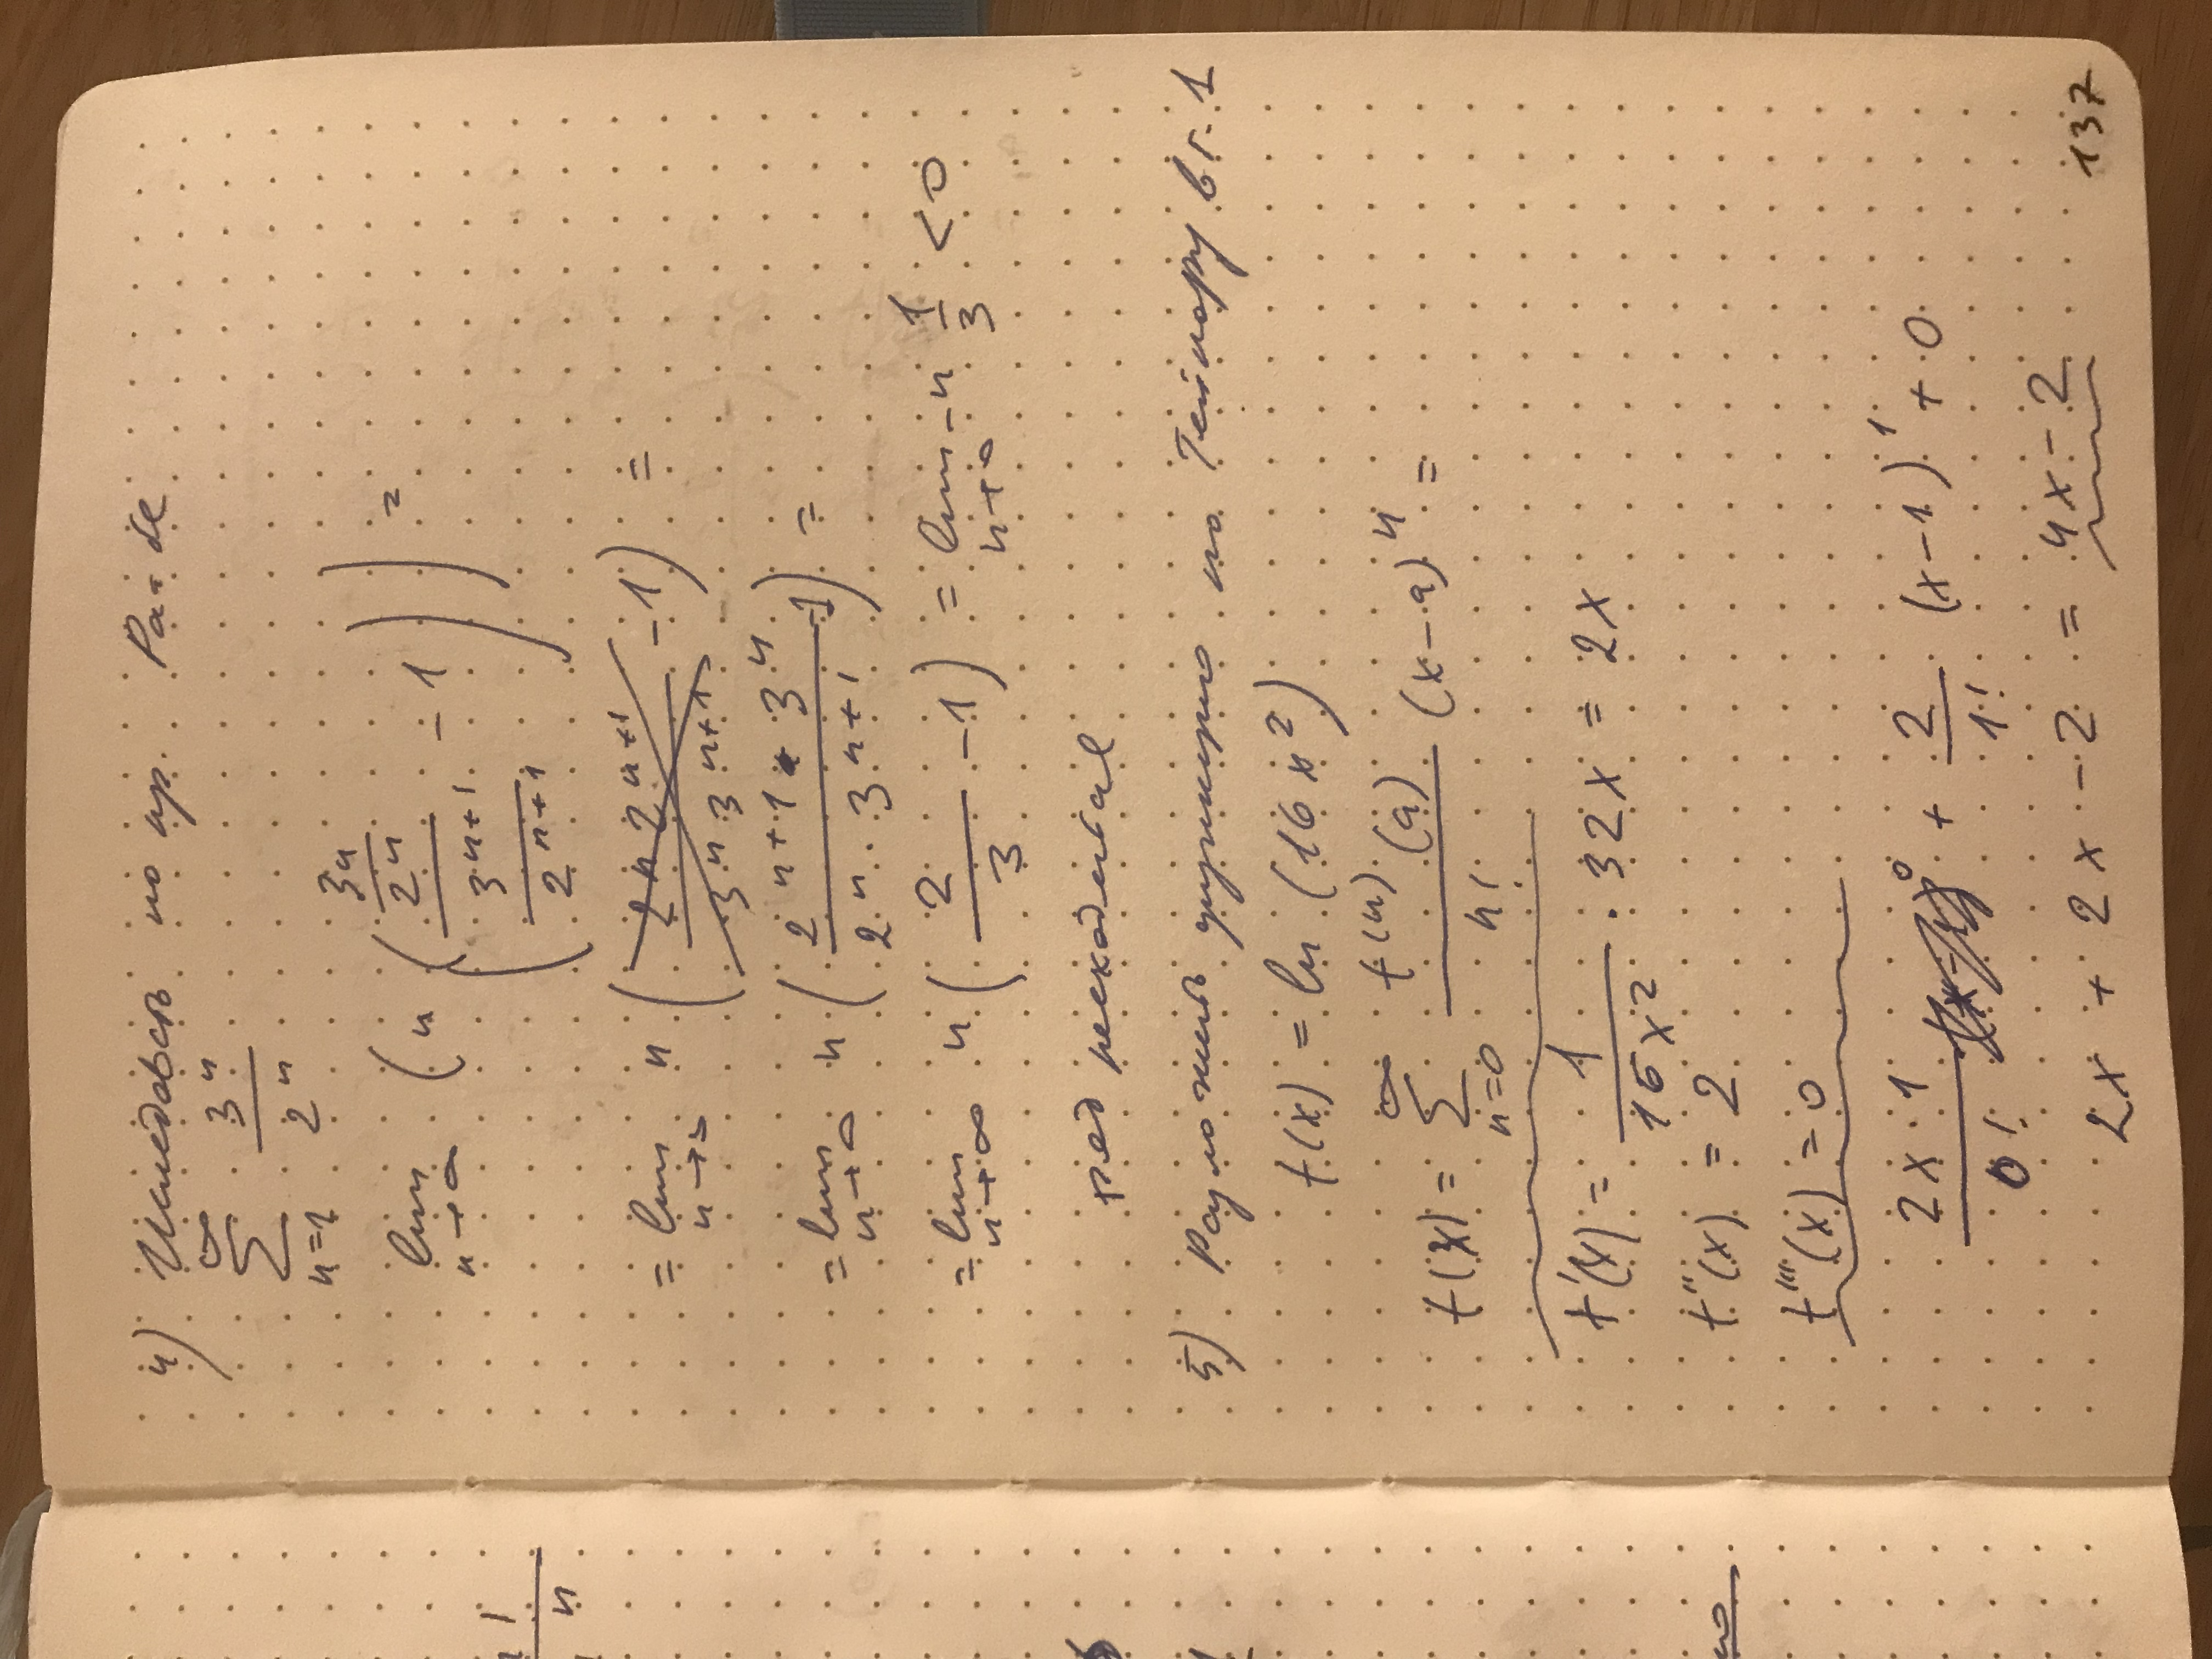 4) Иследовать по пр. Раабе
∞ Σ n=1 3^n / 2^n
lim n→∞ (n ((3^n / 2^n) / (3^{n+1} / 2^{n+1}) - 1)) =
= lim n→∞ n (2^n 2^{n+1} / 3^n 3^{n+1} - 1) =
= lim n→∞ n (2^{n+1} · 3^n / 2^n · 3^{n+1} - 1) =
= lim n→∞ n (2 / 3 - 1) = lim n→∞ -n 1/3 < 0
ряд расходиться
5) Разложить функцию по Тейлору в т. 1
f(x) = ln (16x^2)
f(x) = ∞ Σ n=0 f^{(n)}(a) / n! (x-a)^n =
f'(x) = 1 / 16x^2 · 32x = 2x
f''(x) = 2
f'''(x) = 0
2x·1 / 0! + 2 / 1! (x-1)^1 + 0
2x + 2x - 2 = 4x - 2
137
n!
n